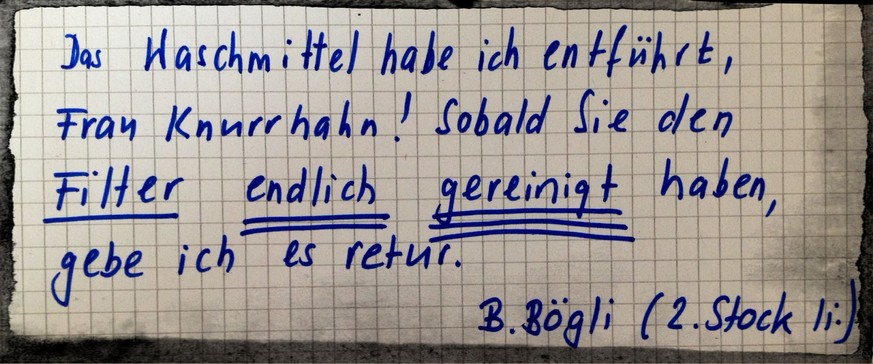 Das Waschmittel habe ich entführt,
Frau Knurrhahn! Sobald Sie den
Filter endlich gereinigt haben,
gebe ich es retur.
B. Bögli (2. Stock li.)